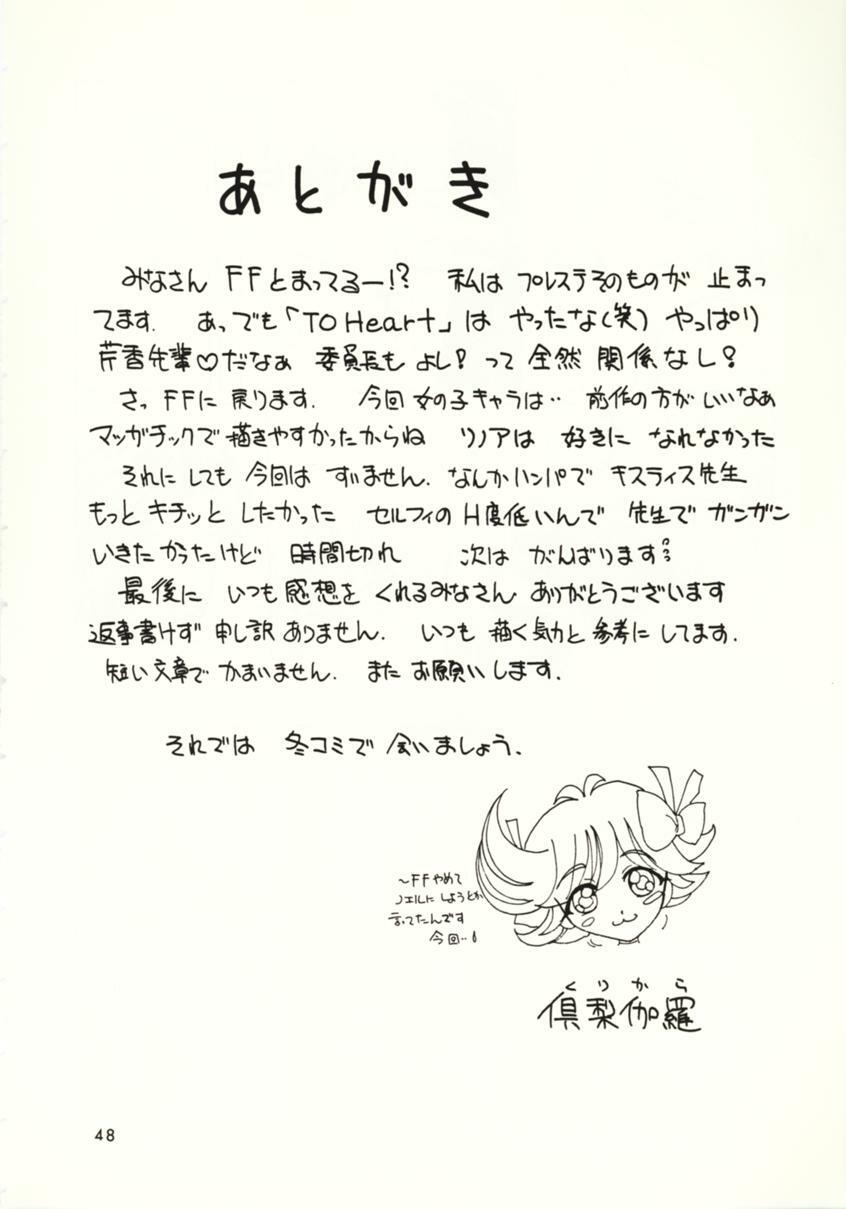 あとがき
みなさん FFとまってるー!? 私は プレステそのものが 止まっ
てます. あっでも「TO Heart」は やったな(笑) やっぱり
芹香先輩♡だなぁ 委員長も よし! って 全然 関係なし!
さっ FFに 戻ります. 今回 女の子キャラは‥ 前作の方が いいなぁ
マンガチックで 描きやすかったからね リノアは 好きに なれなかった
それにしても 今回は すいません. なんかハンパで キスティス先生
もっと キチッと したかった セルフィの H度低いんで 先生で ガンガン
いきたかったけど 時間切れ 次は がんばります
最後に いつも 感想を くれるみなさん ありがとうございます
返事書けず 申し訳ありません. いつも 描く気力と 参考に してます.
短い文章で かまいません. また お願いします.
それでは 冬コミで 会いましょう.
～FFやめて
ノエルに しようとか
言ってたんです
今回‥
くりから
倶梨伽羅
48